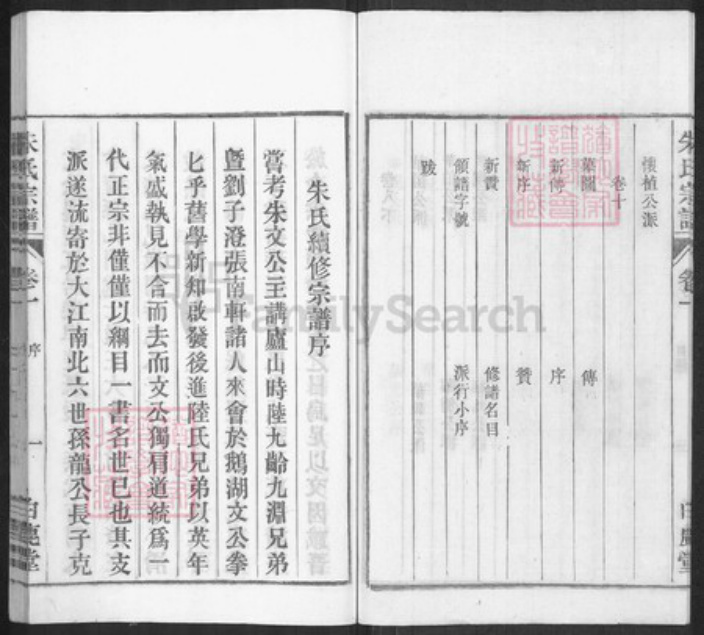 懷植公派
卷十
墓圖 傳
新傳 序
新序 贊
新贊 修譜名目
領譜字號 派行小序
跋
朱氏宗譜 卷一
白鹿堂
朱氏續修宗譜序
嘗考朱文公主講廬山時陸九齡九淵兄弟
暨劉子澄張南軒諸人來會於鵝湖文公拳
匕乎舊學新知啟發後進陸氏兄弟以英年
氣盛執見不合而去而文公獨肩道統爲一
代正宗非僅僅以綱目一書名世已也其支
派遂流寄於大江南北六世孫龍公長子克
朱氏宗譜 卷一 序 一 白鹿堂
FamilySearch